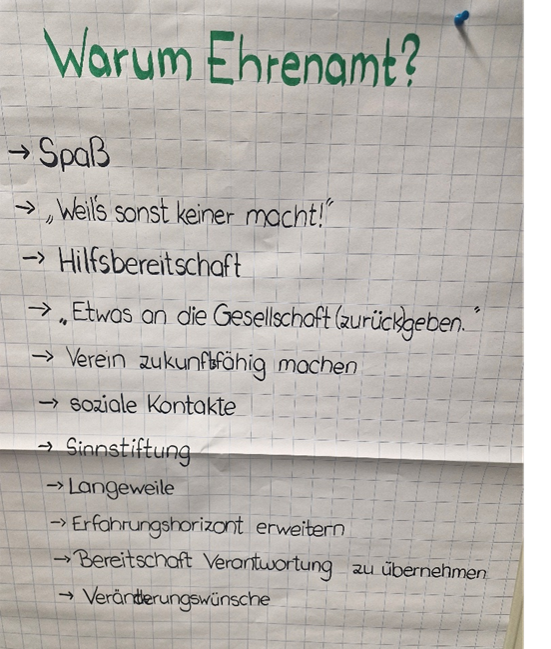 Warum Ehrenamt?
→ Spaß
→ „Weil's sonst keiner macht!“
→ Hilfsbereitschaft
→ „Etwas an die Gesellschaft (zurück)geben.“
→ Verein zukunftsfähig machen
→ soziale Kontakte
→ Sinnstiftung
→ Langeweile
→ Erfahrungshorizont erweitern
→ Bereitschaft Verantwortung zu übernehmen
→ Veränderungswünsche